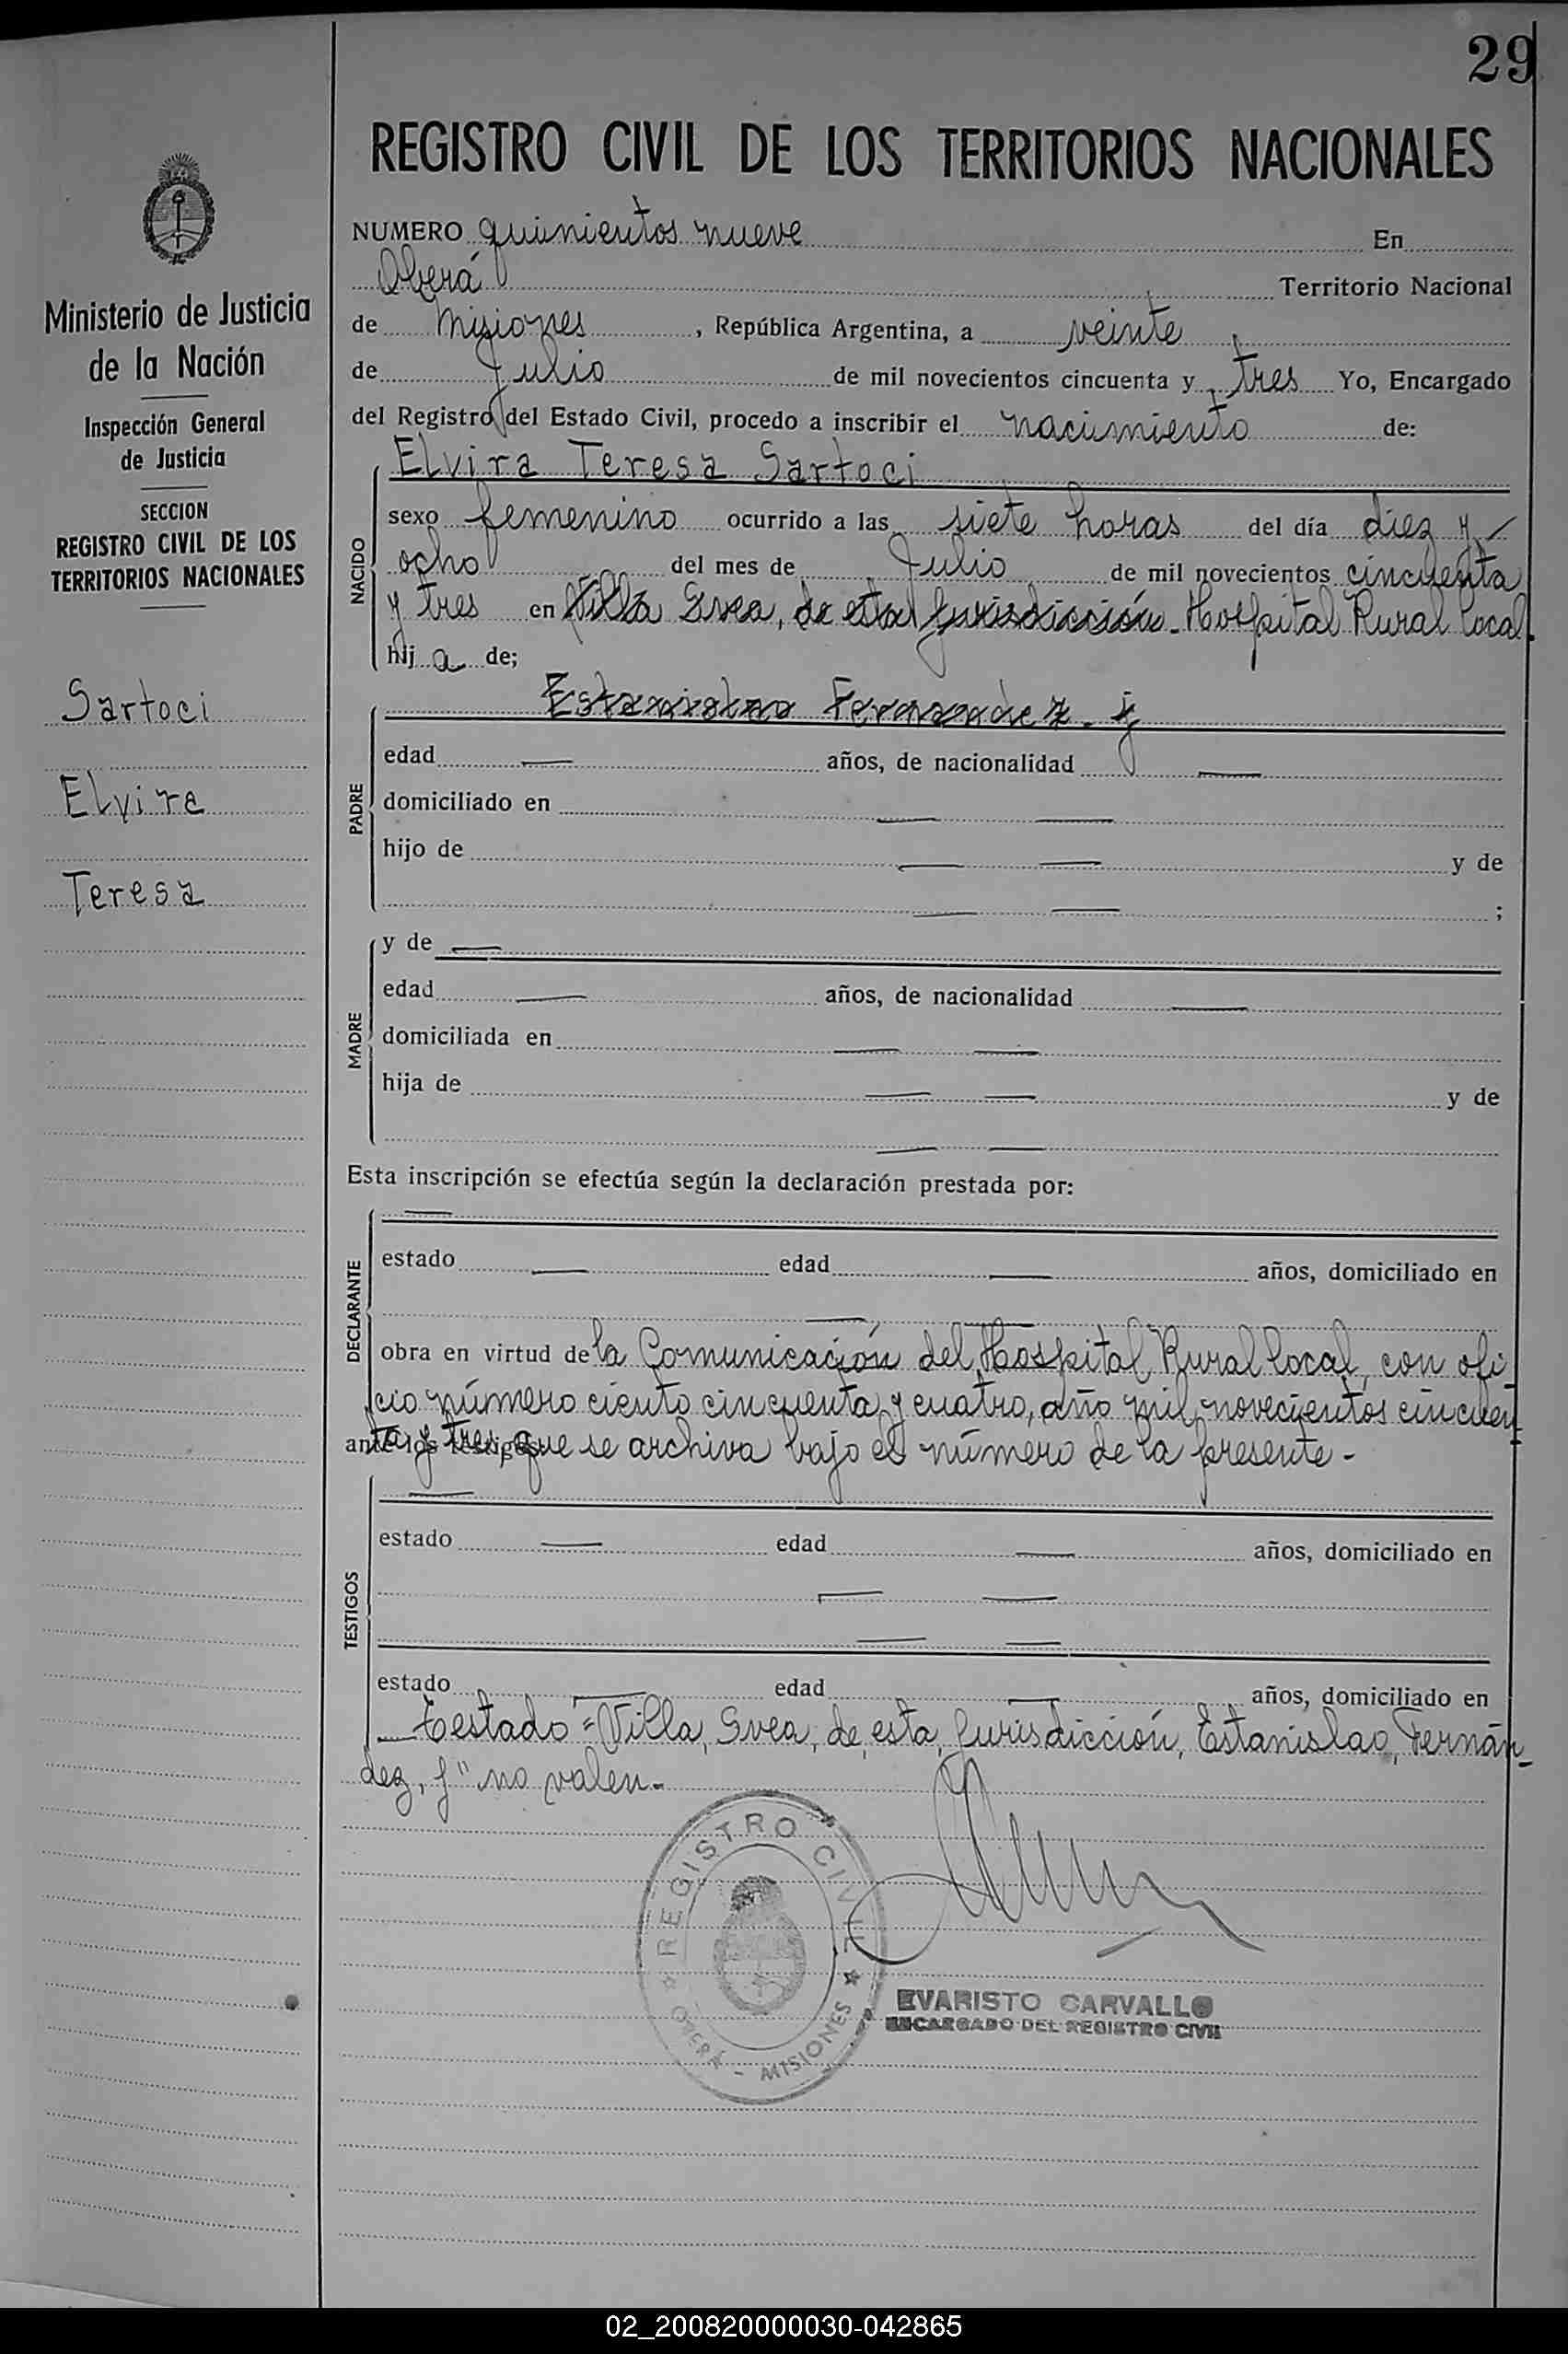 29
REGISTRO CIVIL DE LOS TERRITORIOS NACIONALES
Ministerio de Justicia
de la Nación
Inspección General
de Justicia
SECCION
REGISTRO CIVIL DE LOS
TERRITORIOS NACIONALES
Sartoci
Elvira
Teresa
NUMERO quinientos nueve En
Oberá Territorio Nacional
de Misiones, República Argentina, a veinte
de Julio de mil novecientos cincuenta y tres Yo, Encargado
del Registro del Estado Civil, procedo a inscribir el nacimiento de:
NACIDO
Elvira Teresa Sartoci
sexo femenino ocurrido a las siete horas del día diez y
ocho del mes de Julio de mil novecientos cincuenta
y tres en Villa Svea, de esta Jurisdicción - Hospital Rural Local
hij a de;
PADRE
Estanislao Fernandez - j
edad — años, de nacionalidad —
domiciliado en — —
hijo de — — y de
— — ;
MADRE
y de —
edad — años, de nacionalidad —
domiciliada en — —
hija de — — y de
— —
Esta inscripción se efectúa según la declaración prestada por:
DECLARANTE
—
estado — edad — años, domiciliado en
— —
obra en virtud de la Comunicación del Hospital Rural Local, con ofi-
cio número ciento cincuenta y cuatro, año mil novecientos cincuen-
ante los testigos: ta y tres que se archiva bajo el número de la presente -
TESTIGOS
—
estado — edad — años, domiciliado en
— —
— —
estado — edad — años, domiciliado en
— Testado "Villa, Svea, de, esta, Jurisdicción, Estanislao, Fernán-
dez, j" no valen.-
REGISTRO CIVIL
OBERÁ - MISIONES
EVARISTO CARVALLO
ENCARGADO DEL REGISTRO CIVIL
02_200820000030-042865